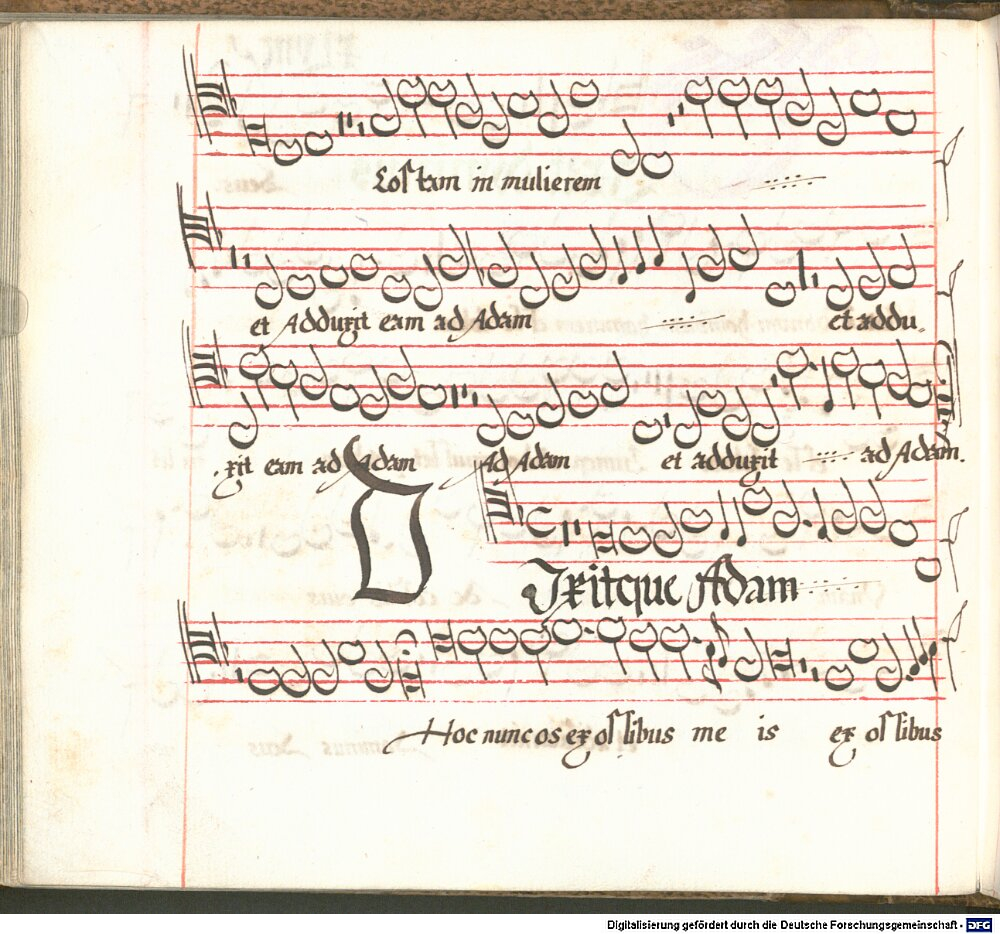 Costam in mulierem
et Adduxit eam ad Adam et addu.
.xit eam ad Adam Ad Adam et adduxit ad Adam.
DIxitque Adam
Hoc nunc os ex ossibus me is ex ossibus
Digitalisierung gefördert durch die Deutsche Forschungsgemeinschaft - DFG